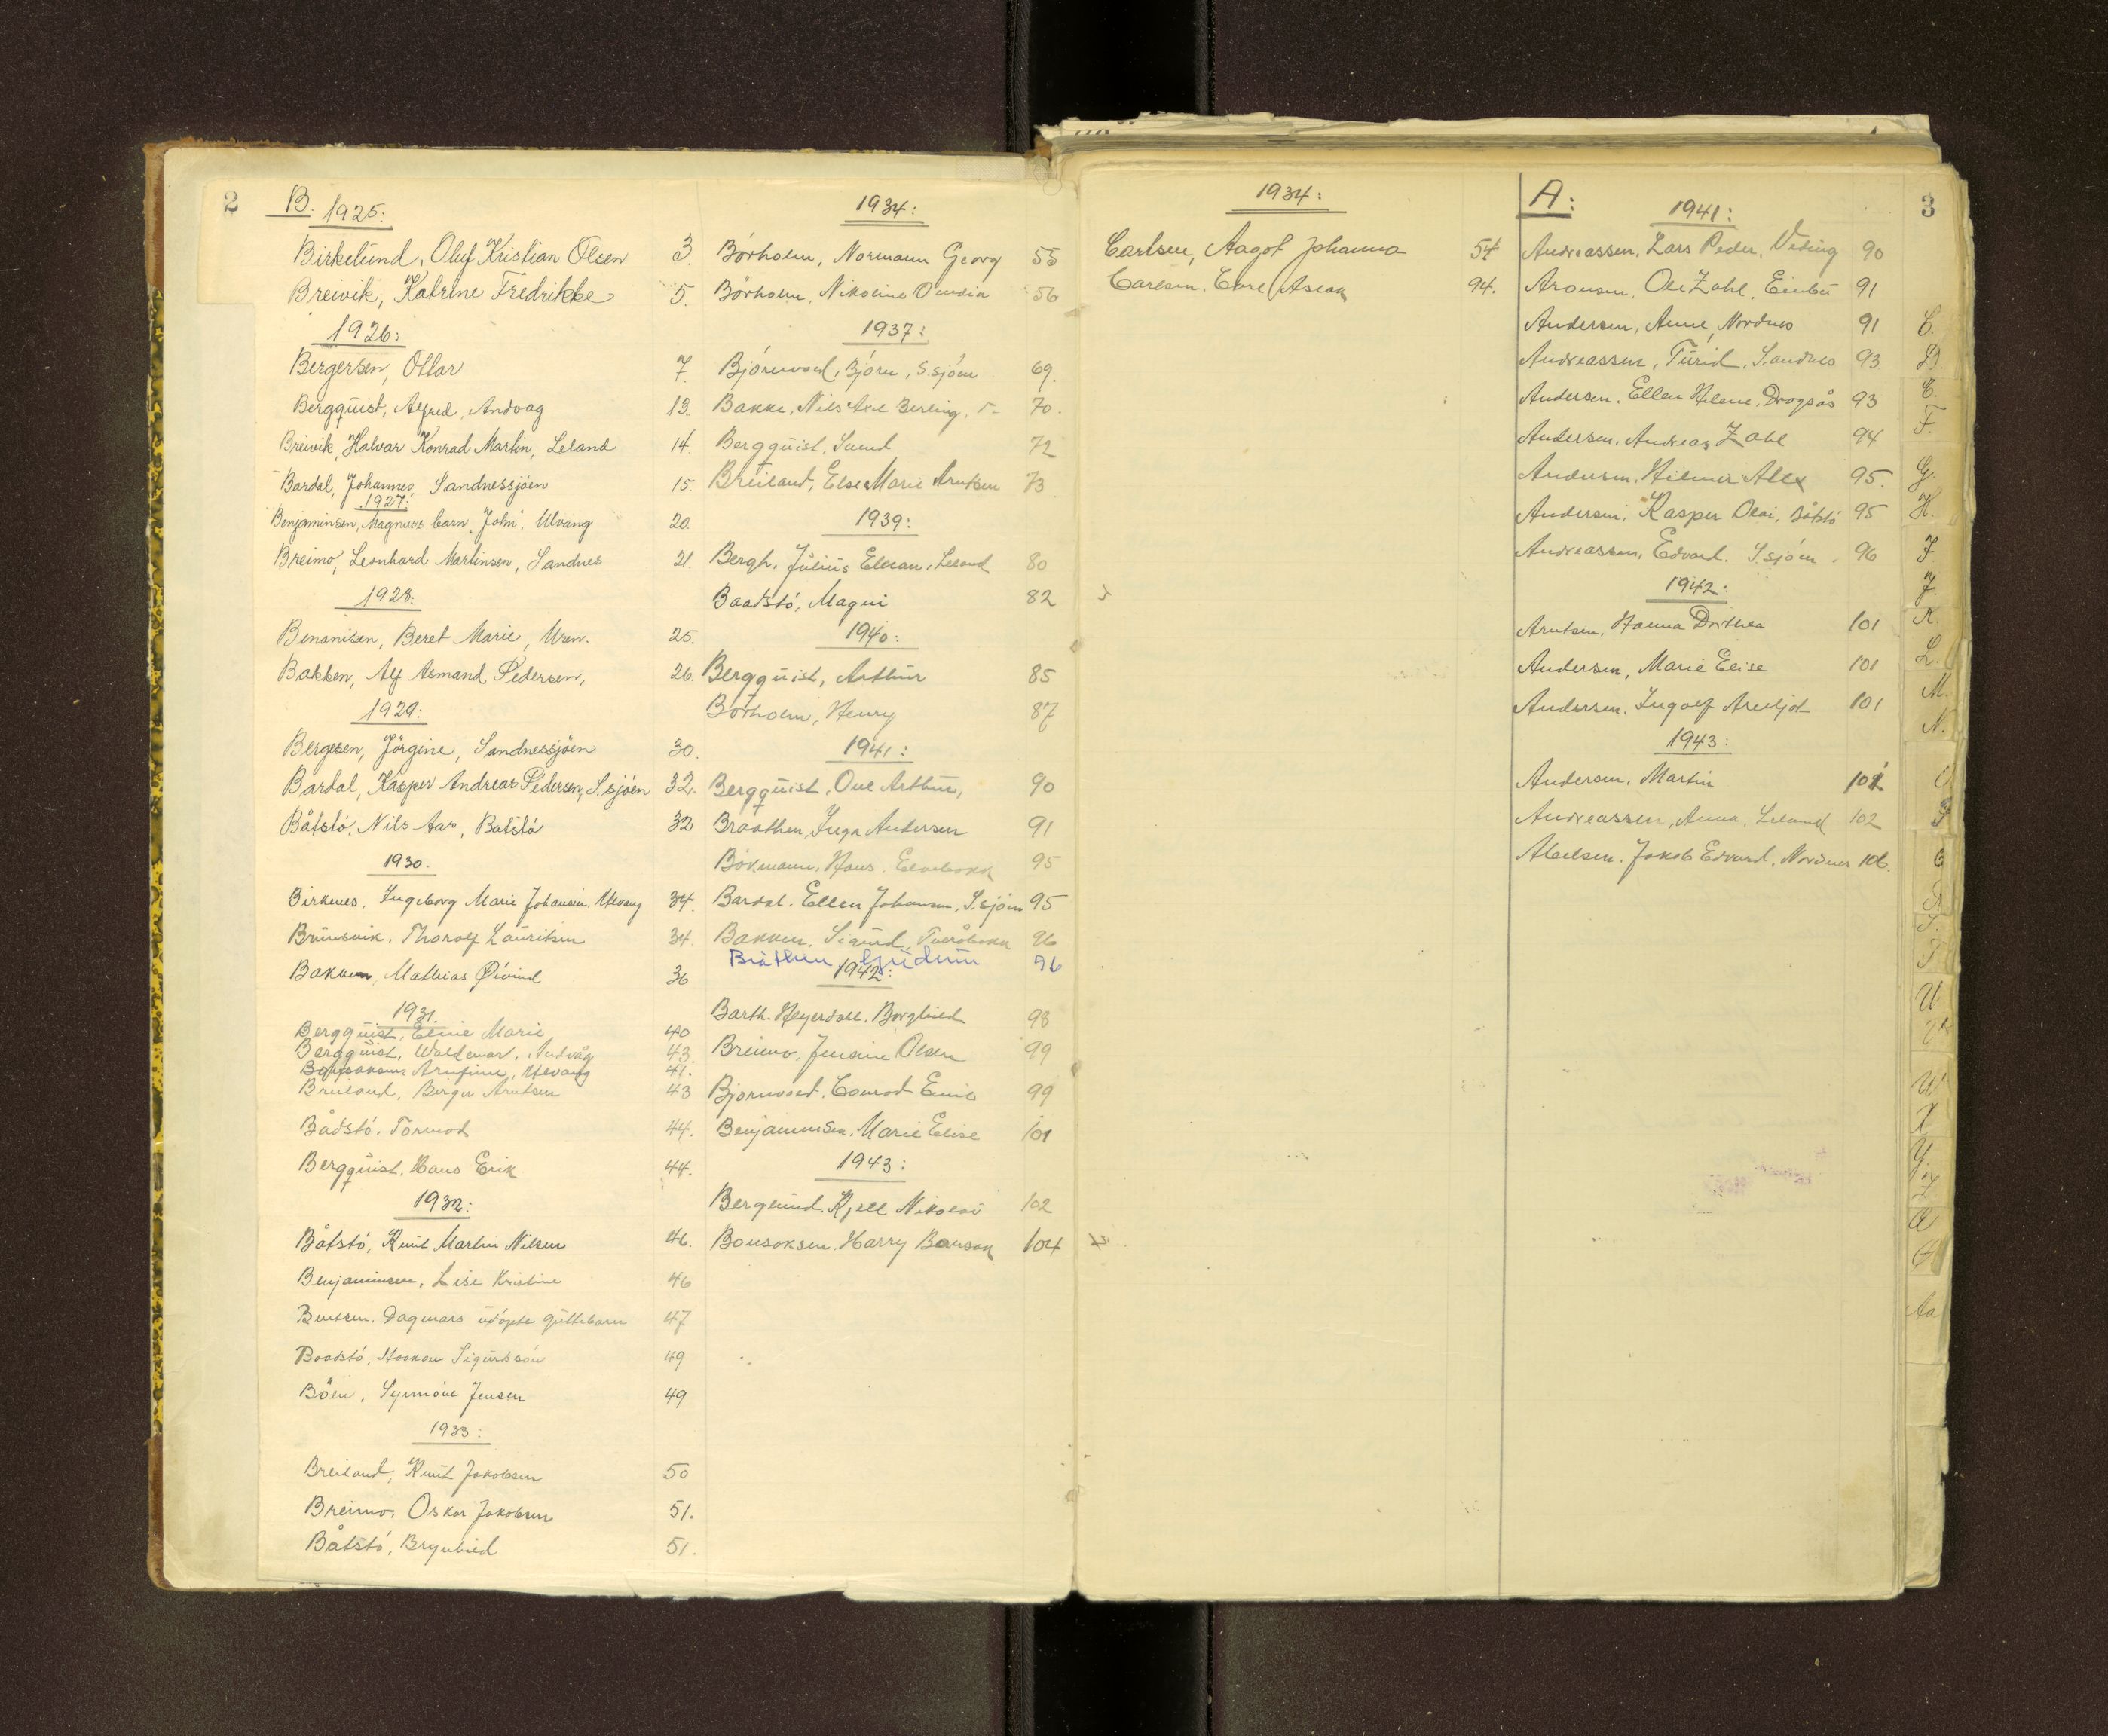 2
B.
1925:
Birkelund, Oluf Kristian Olsen 3.
Breivik, Katrine Fredrikke 5.
1926:
Bergersen, Ottar 7.
Bergquist, Alfred, Andvag 13.
Breivik, Halvar Konrad Martin, Leland 14.
Bardal, Johannes, Sandnessjöen 15.
1927:
Benjaminsen, Magnus barn "John", Ulvang 20.
Breimo, Leonhard Martinsen, Sandnes 21.
1928:
Benonisen, Beret Marie, 25.
Bakken, Alf Asmand Pedersen, 26.
1929:
Bergesen, Jörgine, Sandnessjöen 30.
Bardal, Kasper Andreas Pedersen, S.sjöen 32.
Båtstö, Nils Aas, Batstö 32
1930.
Birknes, Ingeborg Marie Johansen, Ulvang 34.
Brunsvik, Thorolf Lauritsen 34.
Bakken, Mathias Öivind 36
1931.
Bergquist, Eline Marie 40
Bergquist, Waldemar, Andvåg 43.
Arnfinn, Ulvang 41.
Breiland, Birger Arntsen 43
Bådstö, Tormod 44.
Bergquist, Hans Erik 44.
1932:
Båtstö, Knut Martin Nilsen 46.
Benjaminsen, Lise Kristine 46
Bentsen, Dagmars udöpte guttebarn 47
Baadstö, Haakon Sigurdssön 49
Böen, Synnöve Jensen 49
1933:
Breiland, Knut Jakobsen 50
Breimo, Oskar Jakobsen 51.
Båtstö, Brynhild 51.
1934:
Börholm, Normann Georg 55
Börholm, Nikoline Ovedia 56
1937:
Björnvold, Björn, S.sjöen 69.
Bakke, Nils Axel Berling, 70.
Bergquist, Svend 72
Breiland, Else Marie Arntsen 73
1939:
Bergh, Julius Elean, Leland 80
Baadstö, Magni 82
1940:
Bergquist, Arthur 85
Börholm, Henry 87
1941:
Bergquist, Ove Arthur, 90
Braathen, Inga Andersen 91
Bökmann, Hans. 95
Bardal, Ellen Johansen, S.sjöen 95
Bakken, Sigurd, Tveråbakk 96
Bråthen Gudrun 96
1942:
Barth-Heyerdahl, Borghild 98
Breimo, Jensine Olsen 99
Bjørnvold, Conrad Emil 99
Benjaminsen, Marie Elise 101
1943:
Berglund, Kjell Nikolai 102
Bonsaksen, Harry Bonsak 104
1934:
Carlsen, Aagot Johanna 54
Carlsen, Carl Aslak 94.
3
A:
1941:
Andreassen, Lars Peder, Veding 90
Aronsen, Ole Zahl, Einbu 91
Andersen, Anne, Nordnes 91
Andreassen, Turid, Sandnes 93
Andersen, Ellen Helene, Drogsås 93
Andersen, Andreas Zahl 94
Andersen, Hilmer Alex 95.
Andersen, Kasper Olai, Båtstö 95
Andreassen, Edvard. S.sjöen. 96
1942:
Arntsen, Hanna Dorthea 101
Andersen, Marie Elise 101
Andersen, Ingolf Arnljot 101
1943:
Andersen, Martin 101
Andreassen, Anna, Leland 102
Abelsen, Jakob Edvard, Nordnes 106
C.
D.
E.
F.
G.
H.
I.
J.
K.
L.
M.
N.
U
X
Y
Aa